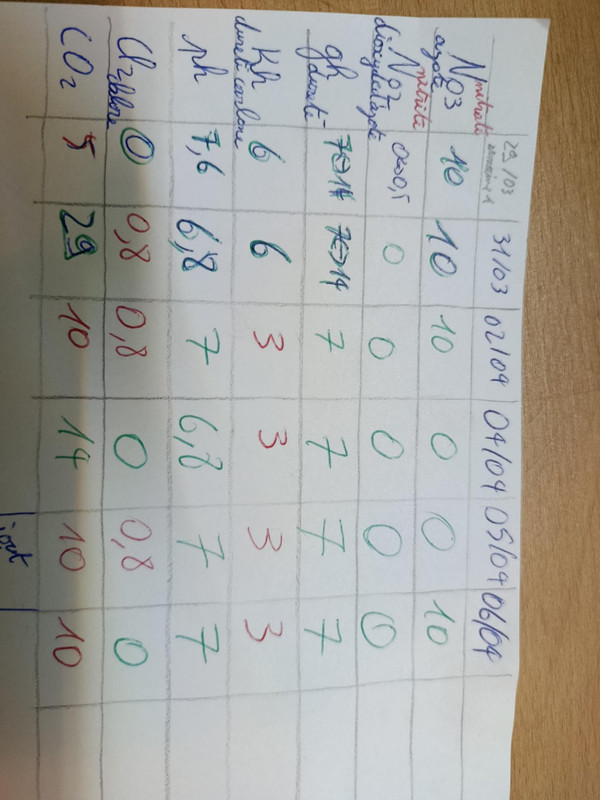 29/03 31/03 02/04 04/04 05/04 06/04
nitrate
NO3 10 10 10 0 0 10
azote
nitrite
NO2 0<>0,5 0 0 0 0 0
dioxyde d'azote
gh 7<>14 7<>14 7 7 7 7
dureté
Kh 6 6 3 3 3 3
dureté carbone
ph 7,6 6,8 7 6,8 7 7
Cl2 chlore 0 0,8 0,8 0 0,8 0
CO2 5 29 10 14 10 10